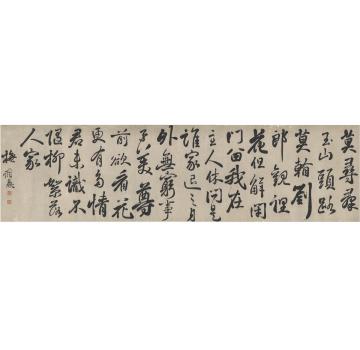 莫尋羣
玉山頭路
莫
劉
郎觀裡
花但解閉
門留我在
主人休問是
誰家
外無窮事
尊
前欲看花
更有多情
君未識不
隨柳絮落
人家
梅